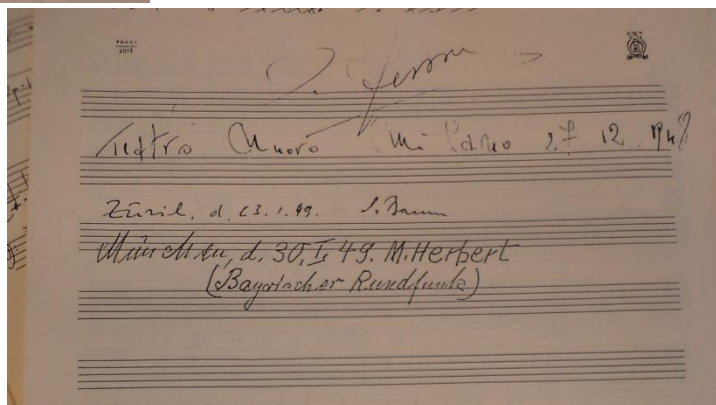 Teatro Nuovo Milano 27.12.1948
Zürich, d. 23.1.49. J. Baum
München, d. 30.I.49. M. Herbert
(Bayrischer Rundfunk)